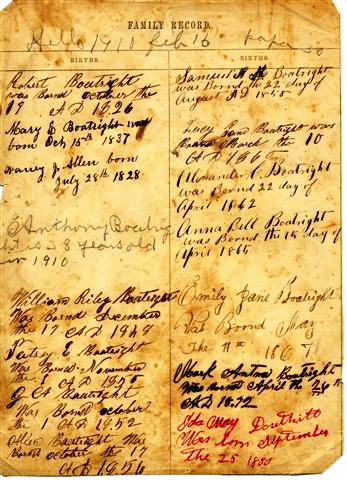 FAMILY RECORD.
Hello 19 0 feb 16 papa 50
BIRTHS.
Robert Boatright
was Bornd october the
18 AD 1826
Mary E Boatright was
born Oct 15th 1837
Nancy J. Allen born
July 28th 1828
Anthony Boatrig
ht is 38 years old
in 1910
William Riley Boatright
Was Bornd December
the 17 AD 1849
E Boatright
Was Bornd November
the AD 1850
Boatright
Was Bornd october
the 1 AD 1852
Allen Boatright Was
Bornd october the 17
AD 1856
BIRTHS.
Samuel H Boatright
was Bornd the 22 day of
August AD 1858
Lucy Boatright was
Bornd March the 10
AD 1860
Alexander C. Boatright
was Bornd 22 day of
April 1862
Anna Bell Boatright
was Bornd the 15 day of
April 1865
Emily Jane Boatright
Was Bornd May
The 11th 1867
Mark Antona Boatright
Was Bornd April the 26th
AD 1872
Ida May Douthitt
Was born September
The 25 1880